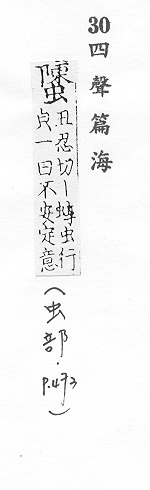 30 四聲篇海
丑忍切丨蜳虫行
貞一曰不安定意
(虫部·P.473)